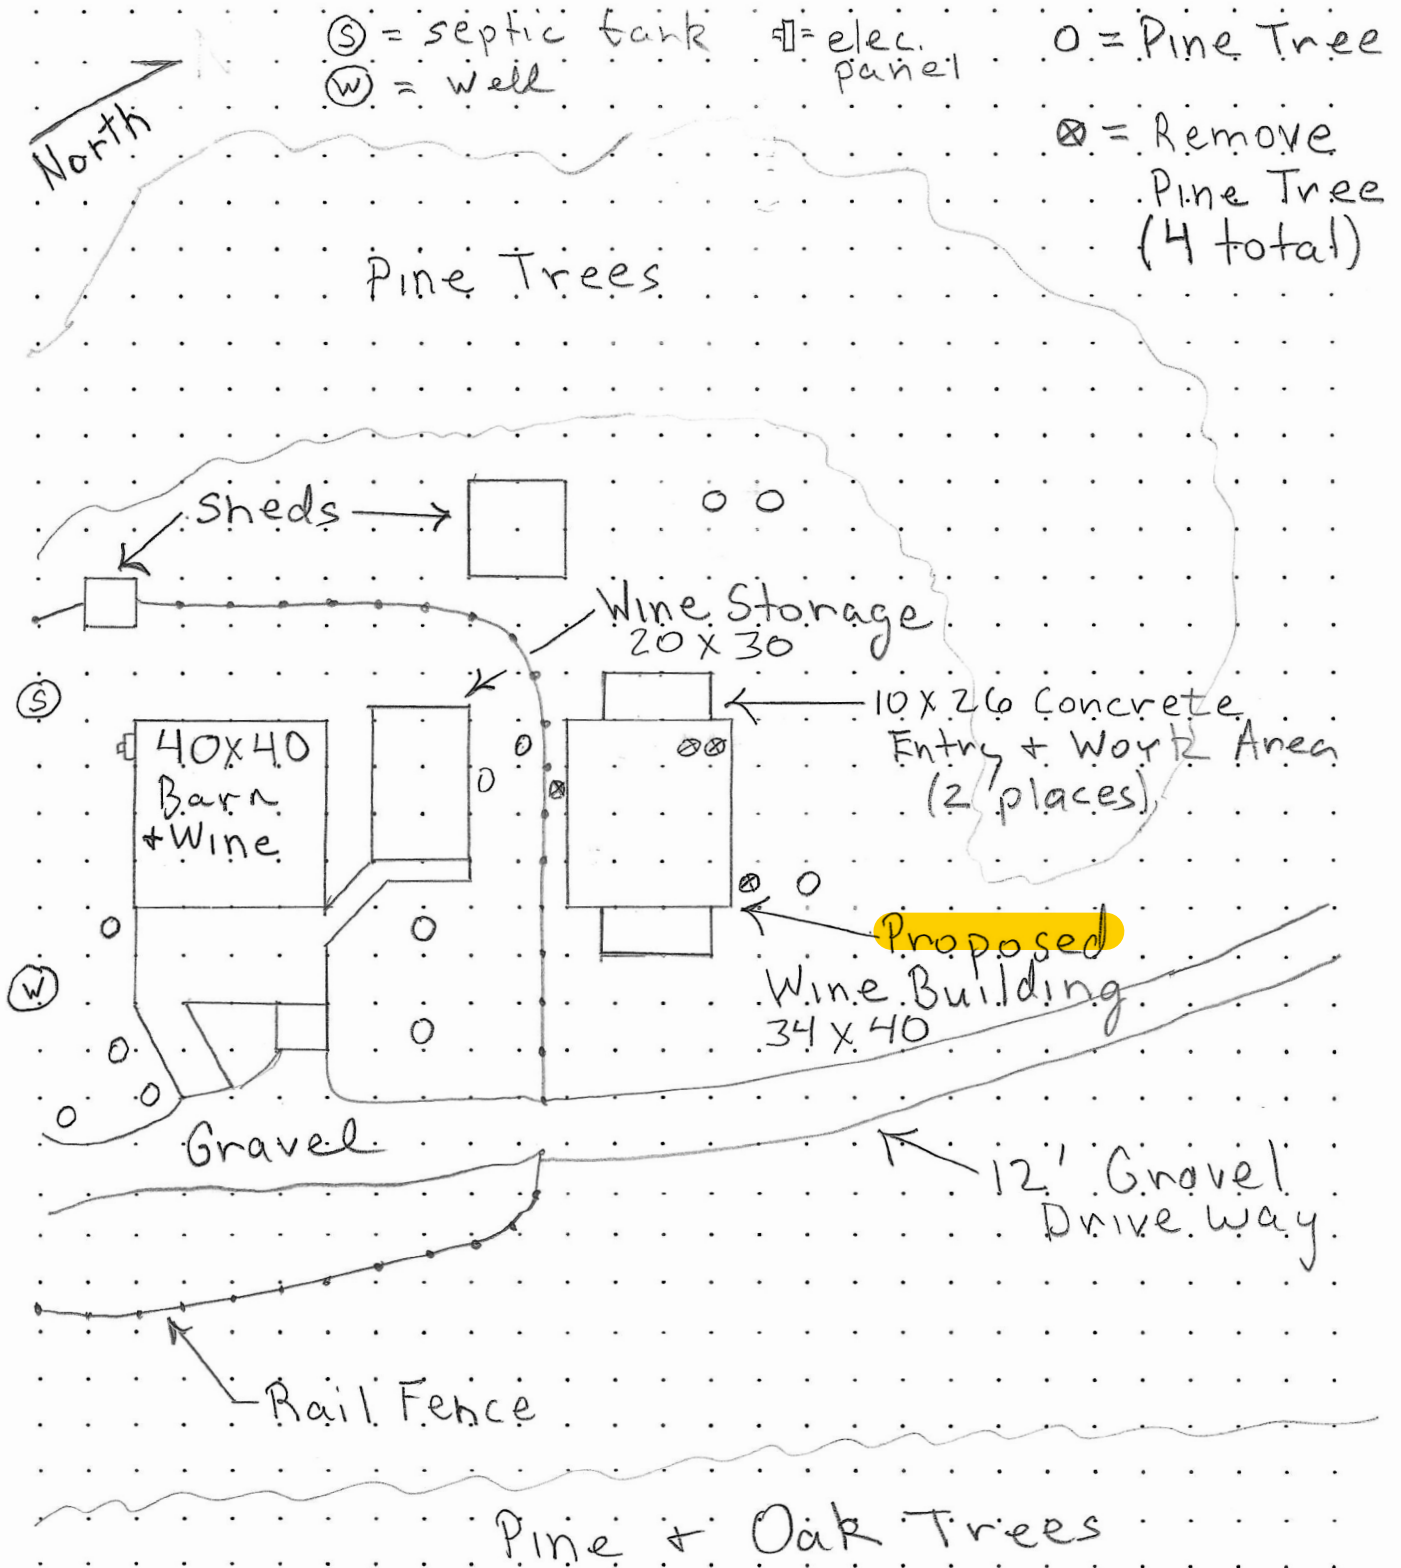 Ⓢ = septic tank
Ⓦ = well
= elec.
panel
O = Pine Tree
⊗ = Remove
Pine Tree
(4 total)
North
Pine Trees
Sheds
Wine Storage
20 x 30
S
10 x 26 Concrete
Entry + Work Area
(2 places)
40x40
Barn
+ Wine
Proposed
Wine Building
34 x 40
W
Gravel
12' Gravel
Drive way
Rail Fence
Pine + Oak Trees